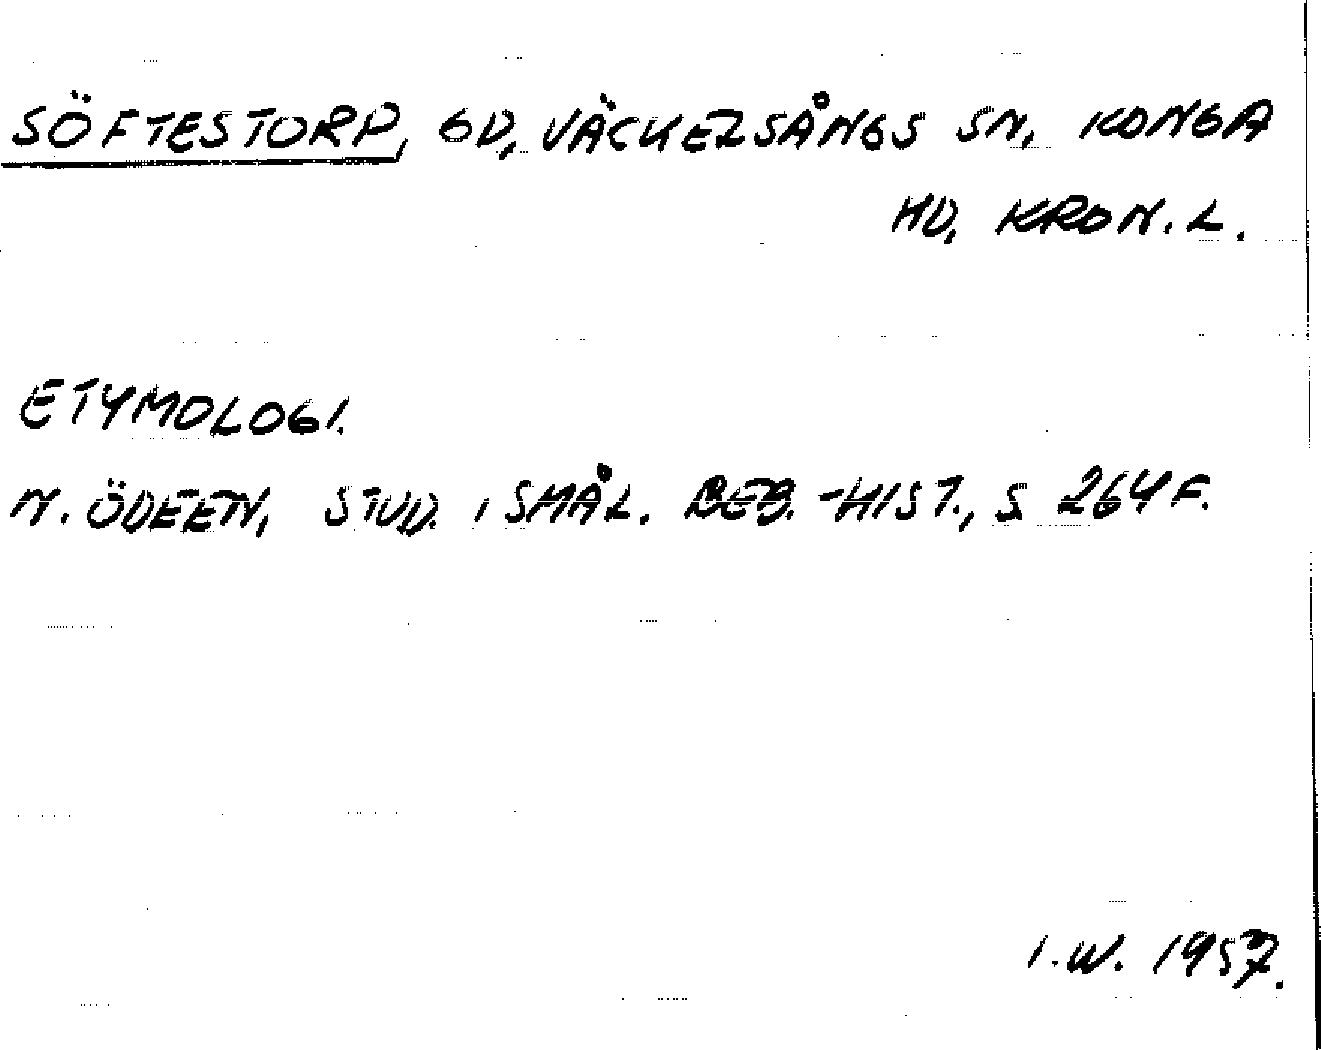 SÖFTESTORP, GD, VÄCKELSÅNGS SN, KONGA
HD, KRON. L.
ETYMOLOGI.
N. ÖDEEN, STUD. I SMÅL. BEB.-HIST., S 264 F.
I. W. 1957.